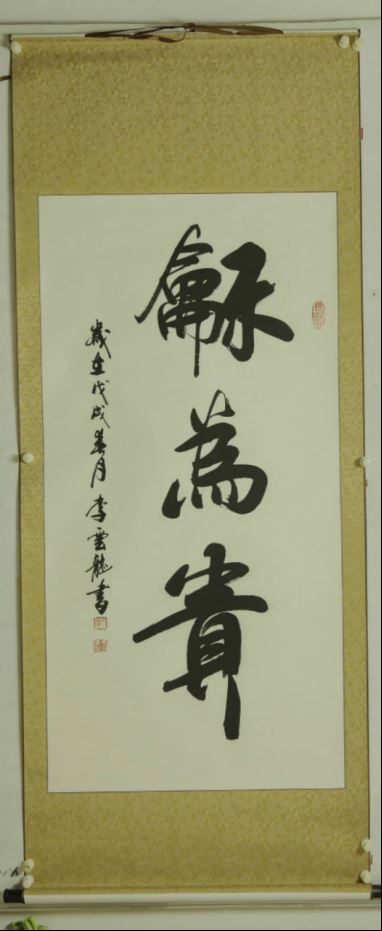 龢為貴
歲在戊戌春月李雲龍書